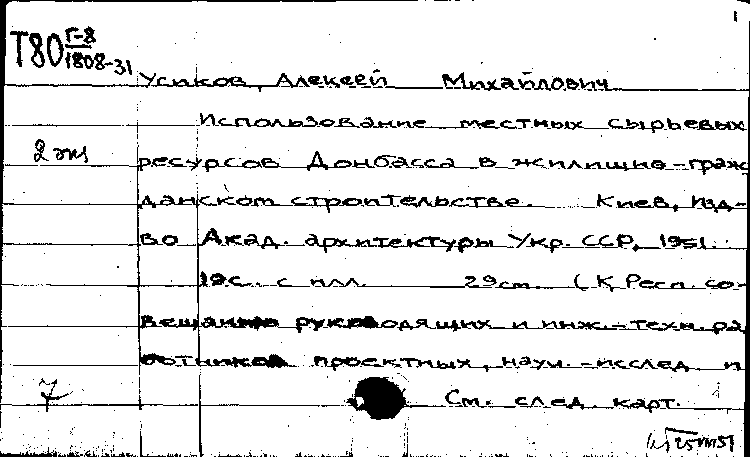 1
Т80 Г-8
1808-31
Усиков, Алексей Михайлович
Использование местных сырьевых
2 экз
ресурсов Донбасса в жилищно-граж
данском строительстве. Киев, Изд-
во Акад. архитектуры Укр. ССР, 1951.
19с. с илл. 29см. (К Респ. со-
вещанию руководящих и инж.-техн. ра
ботников проектных, науч.-исслед и
7
См. след. карт.